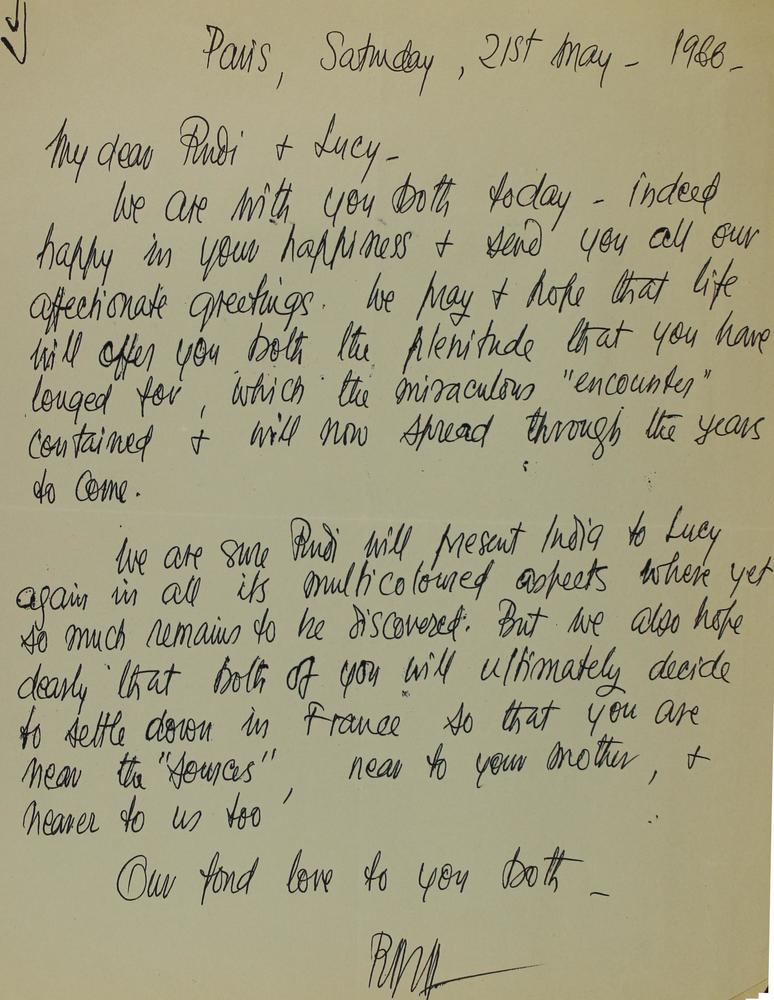 Paris, Saturday, 21st May - 1988 -
My dear Rudi + Lucy -
We are with you both today - indeed
happy in your happiness + send you all our
affectionate greetings. We pray + hope that life
will offer you both the plenitude that you have
longed for, which the miraculous "encounter"
contained + will now spread through the years
to come.
We are sure Rudi will present India to Lucy
again in all its multicoloured aspects where yet
so much remains to be discovered. But we also hope
dearly that both of you will ultimately decide
to settle down in France so that you are
near the "sources", near to your mother, +
nearer to us too
Our fond love to you both -